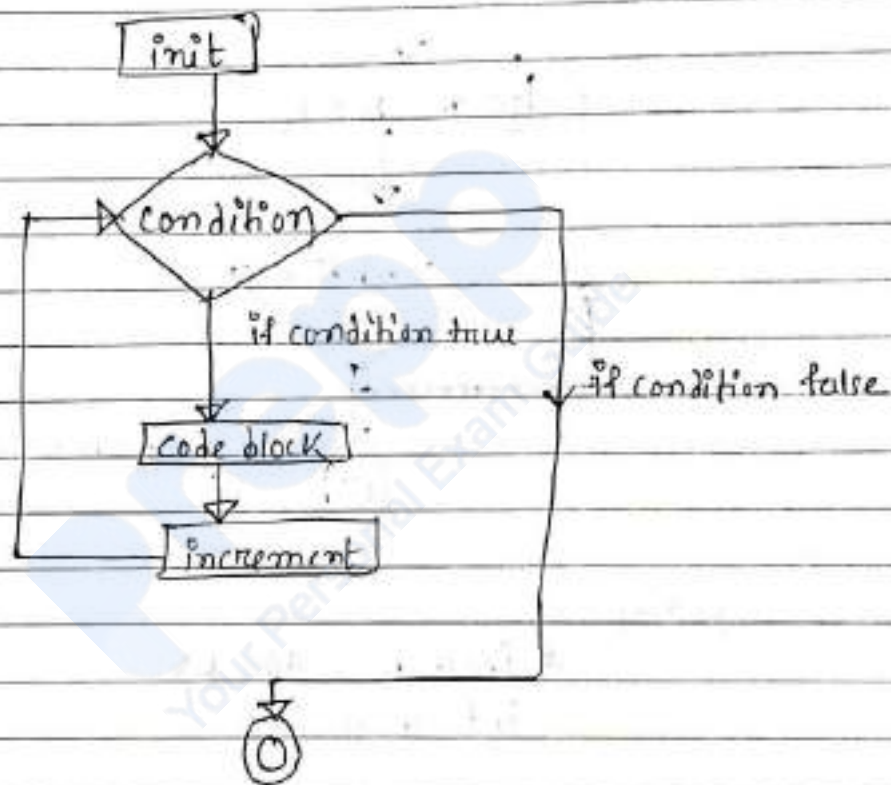 init
condition
if condition true
if condition false
code block
increment
prepp
Your Personal Exam Guide